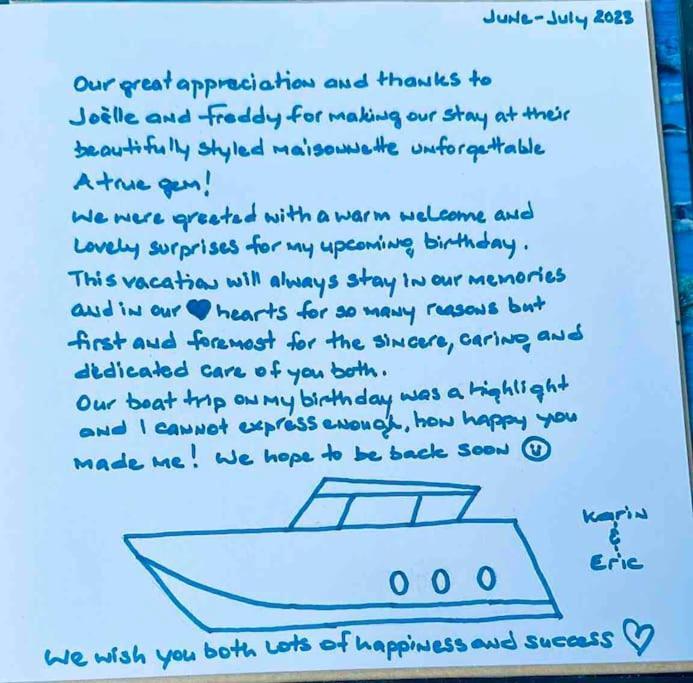 June-July 2023
Our great appreciation and thanks to
Joëlle and Freddy for making our stay at their
beautifully styled maisonnette unforgettable
A true gem!
We were greeted with a warm welcome and
lovely surprises for my upcoming birthday.
This vacation will always stay in our memories
and in our ♥ hearts for so many reasons but
first and foremost for the sincere, caring and
dedicated care of you both.
Our boat trip on my birthday was a highlight
and I cannot express enough, how happy you
made me! We hope to be back soon ☺
Karin
&
Eric
We wish you both lots of happiness and success ♡